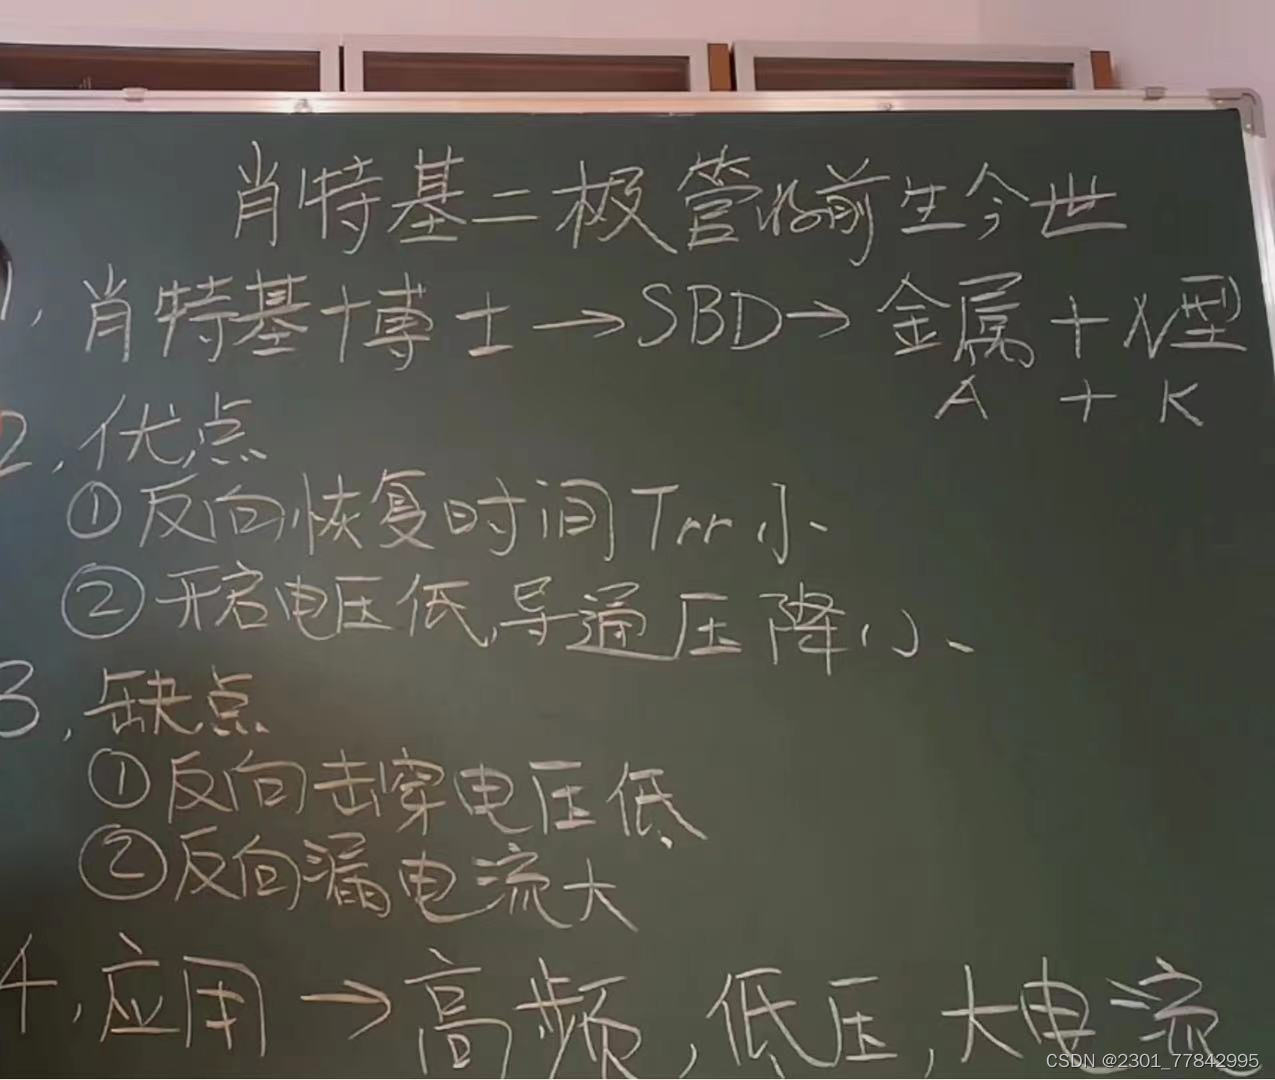 肖特基二极管的前生今世
1,肖特基博士→SBD→金属+N型
A + K
2,优点
①反向恢复时间Trr小
②开启电压低,导通压降小
3,缺点
①反向击穿电压低
②反向漏电流大
4,应用→高频,低压,大电流
CSDN @2301_77842995